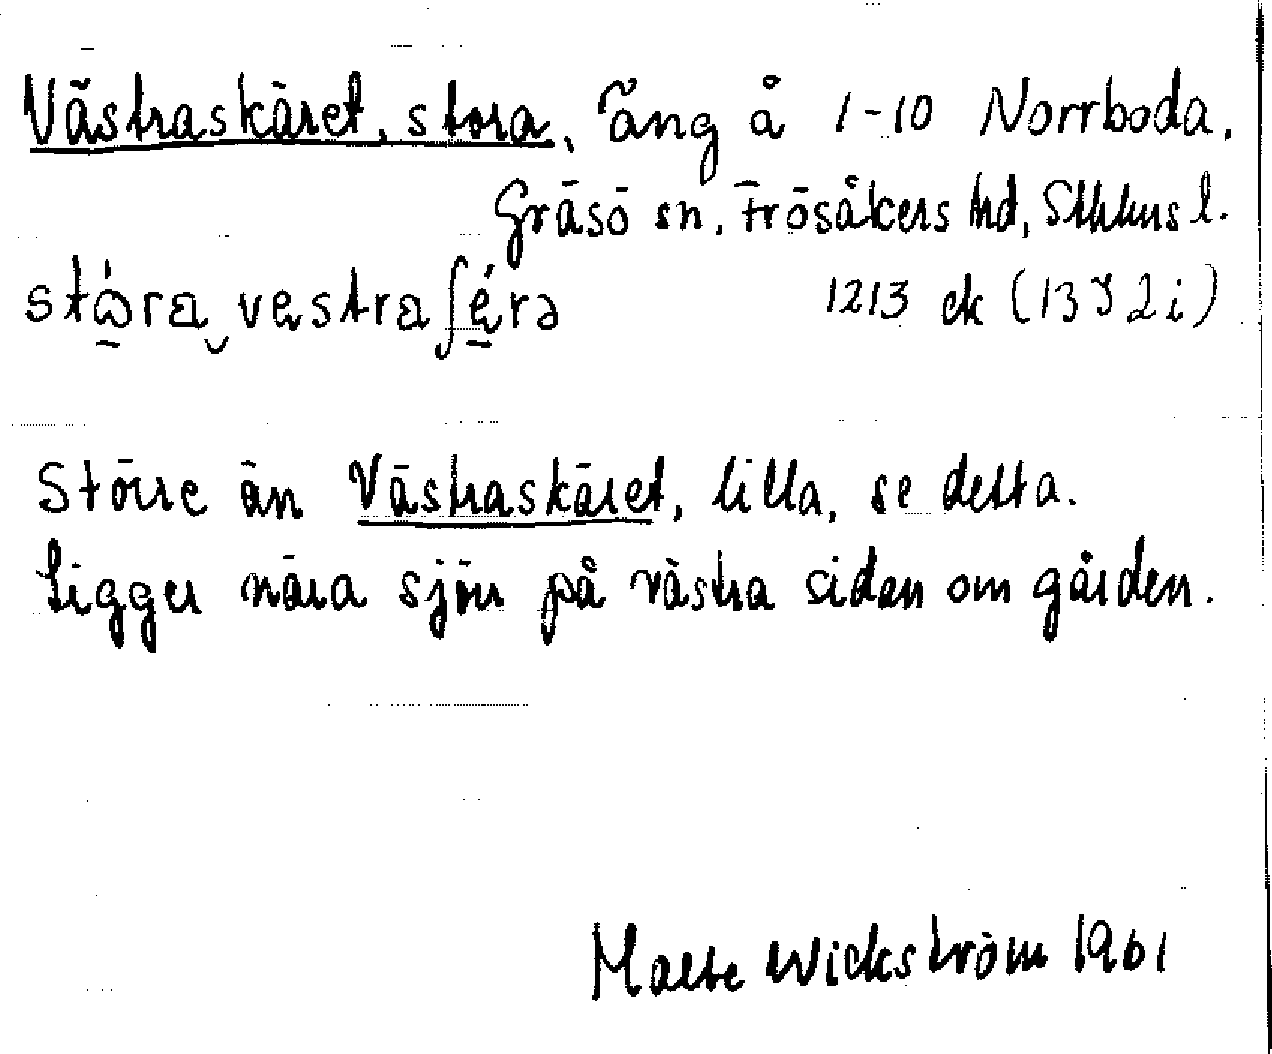 Västraskäret, stora, äng å 1-10 Norrboda.
Gräsö sn, Frösåkers hd, Sthlms l.
stώ̱ra‿vestraʃé̱rə 1213 ek (13 I 2 i)
Större än Västraskäret, lilla, se detta.
Ligger nära sjön på västra sidan om gården.
Malte Wickström 1961